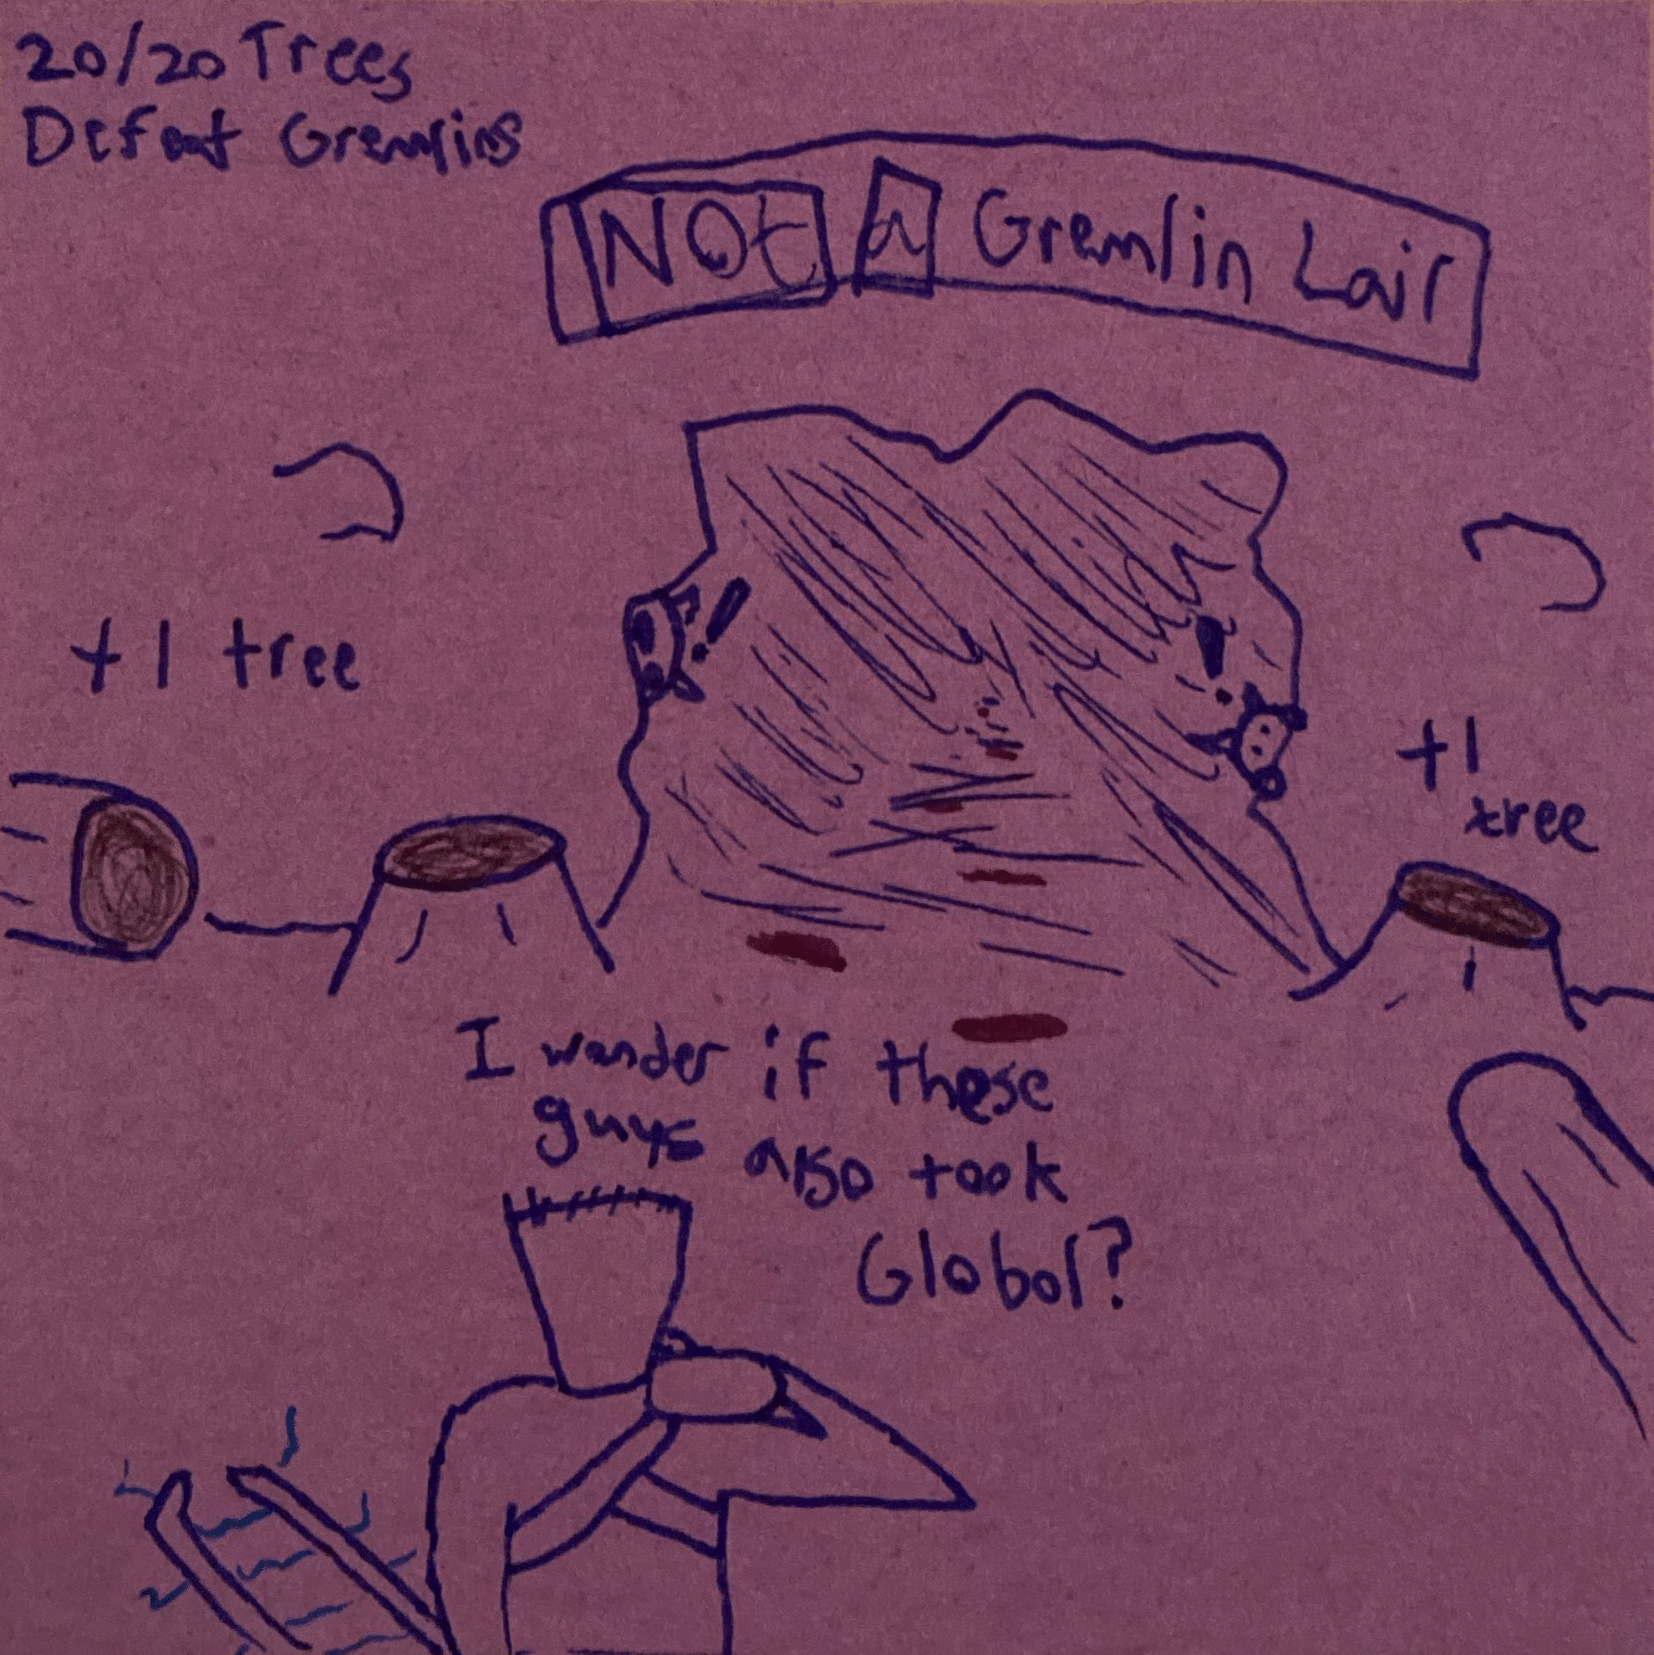 20/20 Trees
Defeat Gremlins
NOt a Gremlin Lair
+1 tree
+1
tree
I wonder if these
guys also took
Global?